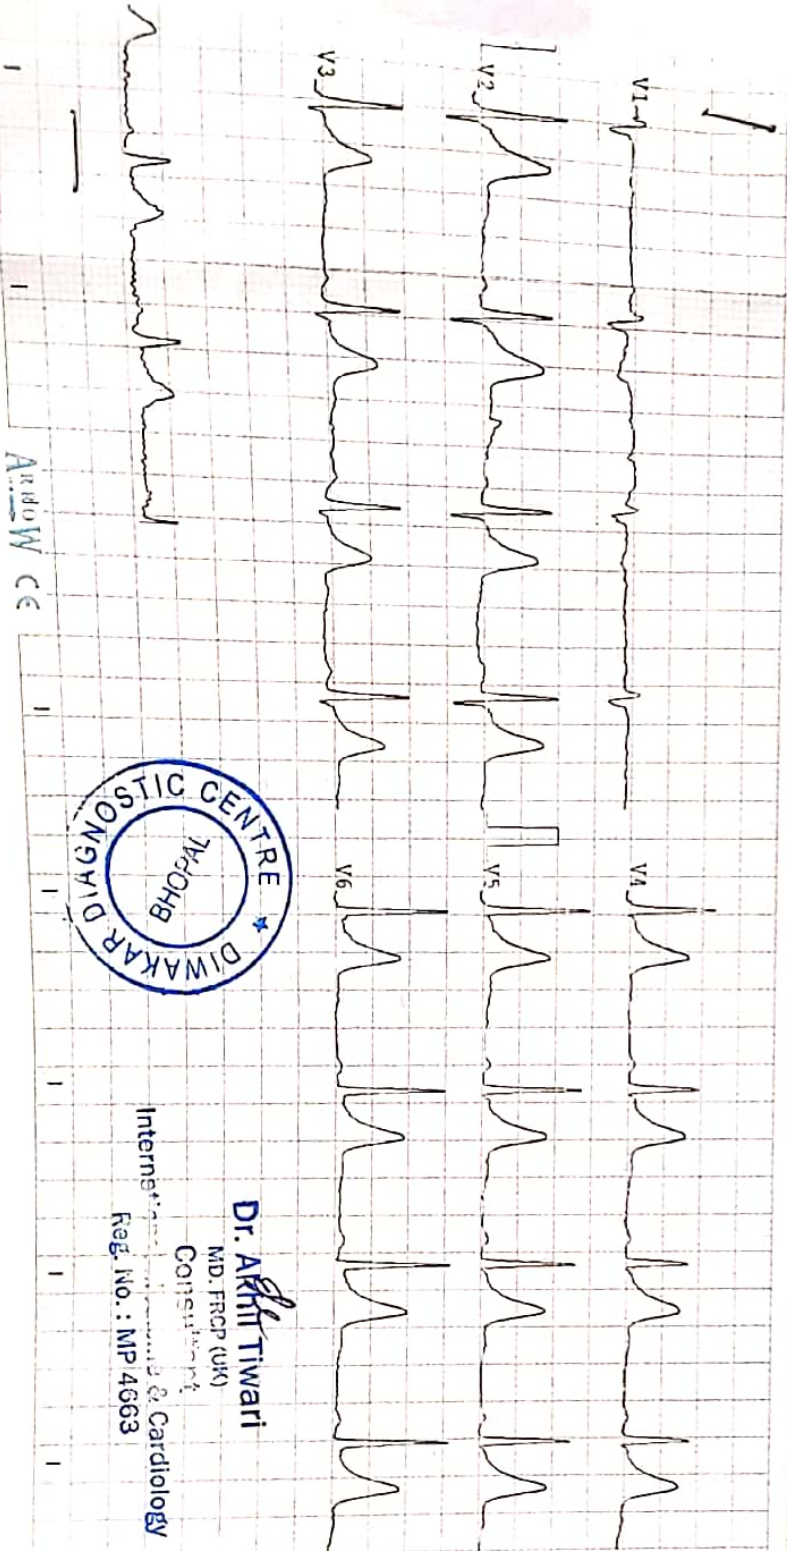 V1
V2
V3
V4
V5
V6
DIWAKAR DIAGNOSTIC CENTRE
BHOPAL
Dr. Akhil Tiwari
MD. FRCP (UK)
Consultant
& Cardiology
Reg. No.: MP 4663
CE